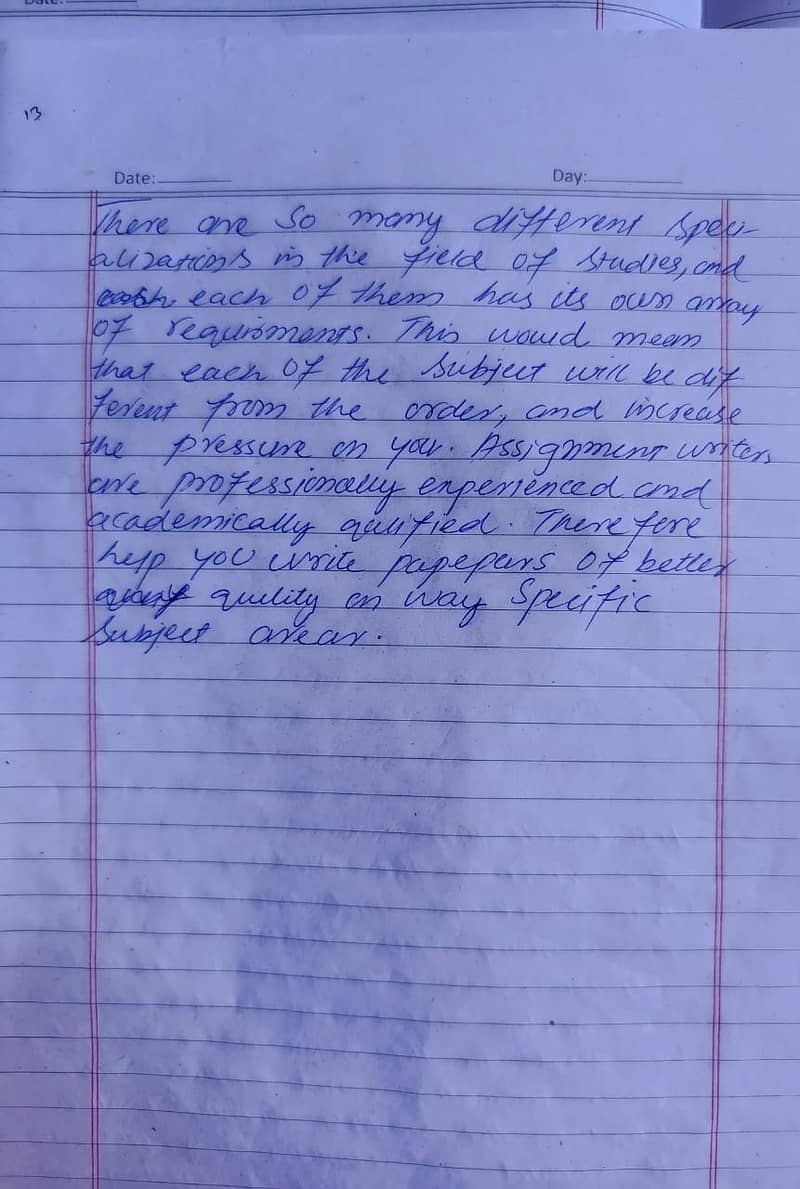 Date:
13
Date: Day:
There are so many different speci-
alizations in the field of studies, and
each of them has its own array
of requirements. This would mean
that each of the subject will be dif
ferent from the order, and increase
the pressure on you. Assignment writers
are professionally experienced and
academically qulified. Therefore
help you write papepers of better
qulity on way specific
subject arear.